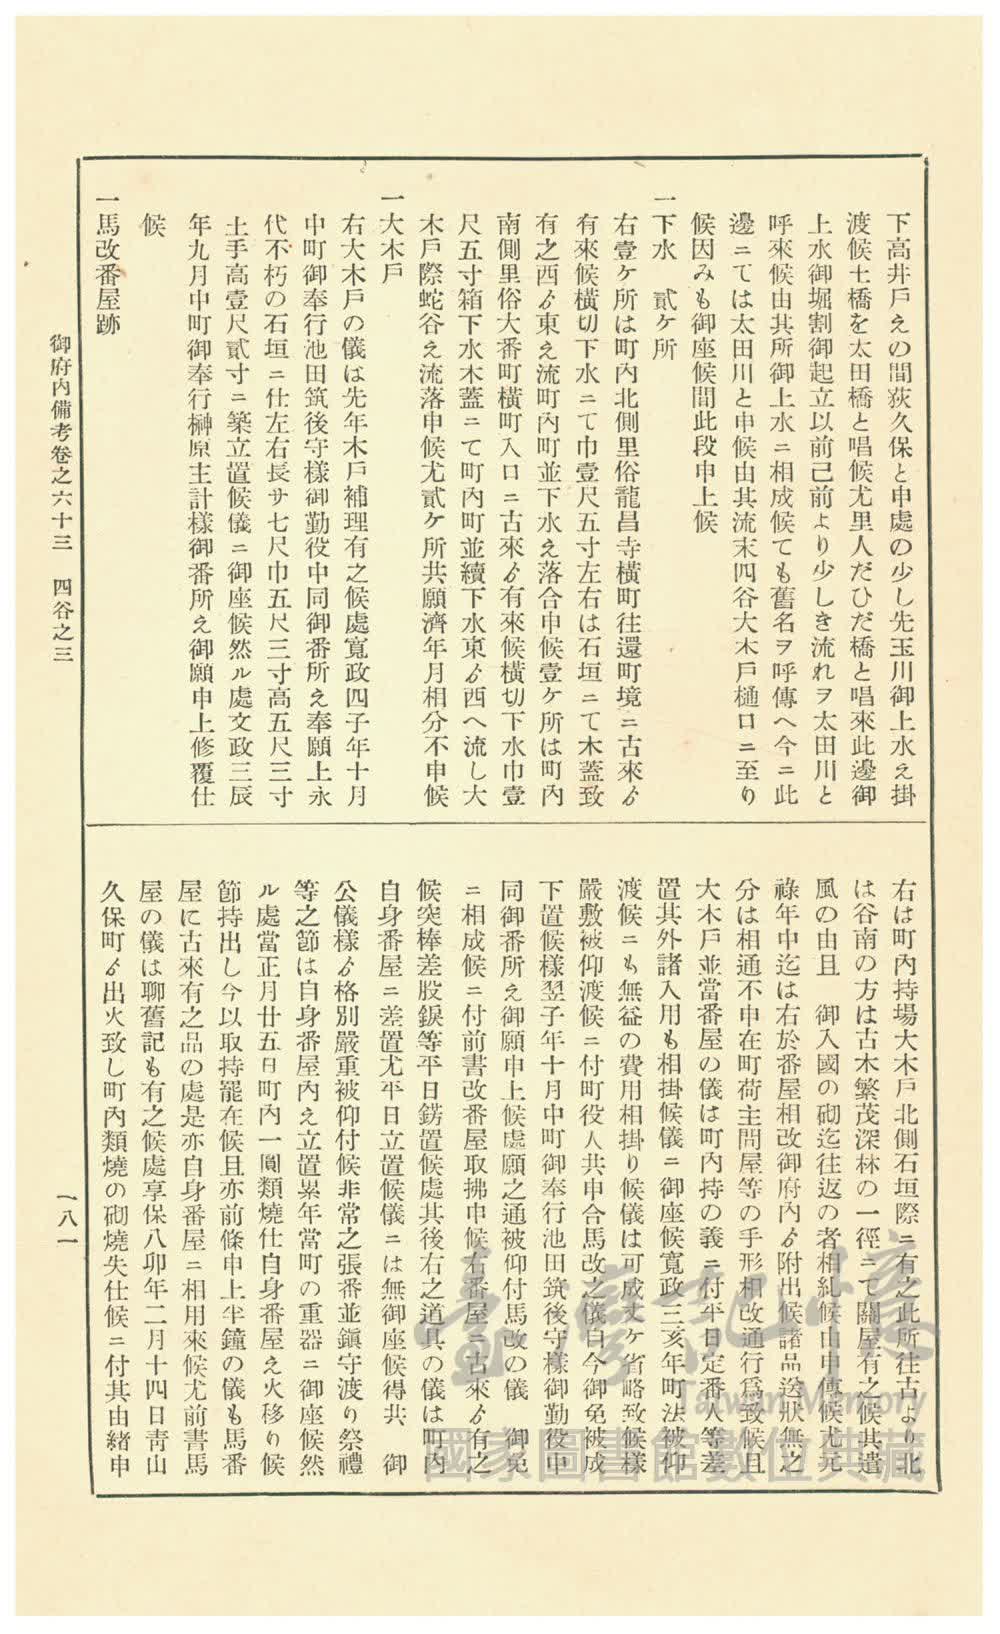 下高井戶えの間荻久保と申處の少し先玉川御上水え掛
渡候土橋を太田橋と唱候尤里人だひだ橋と唱來此邊御
上水御堀割御起立以前己前より少しき流れヲ太田川と
呼來候由其所御上水ニ相成候ても舊名ヲ呼傳へ今ニ此
邊ニては太田川と申候由其流末四谷大木戶樋口ニ至り
候因みも御座候間此段申上候
一下水　貳ケ所
右壹ケ所は町內北側里俗龍昌寺橫町往還町境ニ古來ゟ
有來候橫切下水ニて巾壹尺五寸左右は石垣ニて木蓋致
有之西ゟ東え流町內町並下水え落合申候壹ケ所は町內
南側里俗大番町橫町入口ニ古來ゟ有來候橫切下水巾壹
尺五寸箱下水木蓋ニて町內町並續下水東ゟ西へ流し大
木戶際蛇谷え流落申候尤貳ケ所共願濟年月相分不申候
一大木戶
右大木戶の儀は先年木戶補理有之候處寬政四子年十月
中町御奉行池田筑後守樣御勤役中同御番所え奉願上永
代不朽の石垣ニ仕左右長サ七尺巾五尺三寸高五尺三寸
土手高壹尺貳寸ニ築立置候儀ニ御座候然ル處文政三辰
年九月中町御奉行榊原主計樣御番所え御願申上修覆仕
候
一馬改番屋跡
右は町內持場大木戶北側石垣際ニ有之此所往古より北
は谷南の方は古木繁茂深林の一徑ニて關屋有之候其遺
風の由且　御入國の砌迄往返の者相糺候由申傳候尤元
祿年中迄は右於番屋相改御府內ゟ附出候諸品送狀無之
分は相通不申在町荷主問屋等の手形相改通行爲致候且
大木戶並當番屋の儀は町內持の義ニ付平日定番人等差
置其外諸入用も相掛候儀ニ御座候寬政三亥年町法被仰
渡候ニも無益の費用相掛り候儀は可成丈ケ省略致候樣
嚴敷被仰渡候ニ付町役人共申合馬改之儀自今御免被成
下置候樣翌子年十月中町御奉行池田筑後守樣御勤役中
同御番所え御願申上候處願之通被仰付馬改の儀　御免
ニ相成候ニ付前書改番屋取拂申候右番屋ニ古來ゟ有之
候突棒差胶錑等平日錺置候處其後右之道具の儀は町內
自身番屋ニ差置尤平日立置候儀ニは無御座候得共　御
公儀樣ゟ格別嚴重被仰付候非常之張番並鎭守渡り祭禮
等之節は自身番屋內え立置累年當町の重器ニ御座候然
ル處當正月廿五日町內一圓類燒仕自身番屋え火移り候
節持出し今以取持罷在候且亦前條申上半鐘の儀も馬番
屋に古來有之品の處是亦自身番屋ニ相用來候尤前書馬
屋の儀は聊舊記も有之候處享保八卯年二月十四日靑山
久保町ゟ出火致し町內類燒の砌燒失仕候ニ付其由緖申
御府內備考卷之六十三　四谷之三
一八一
臺灣記憶
Taiwan Memory
國家圖書館數位典藏